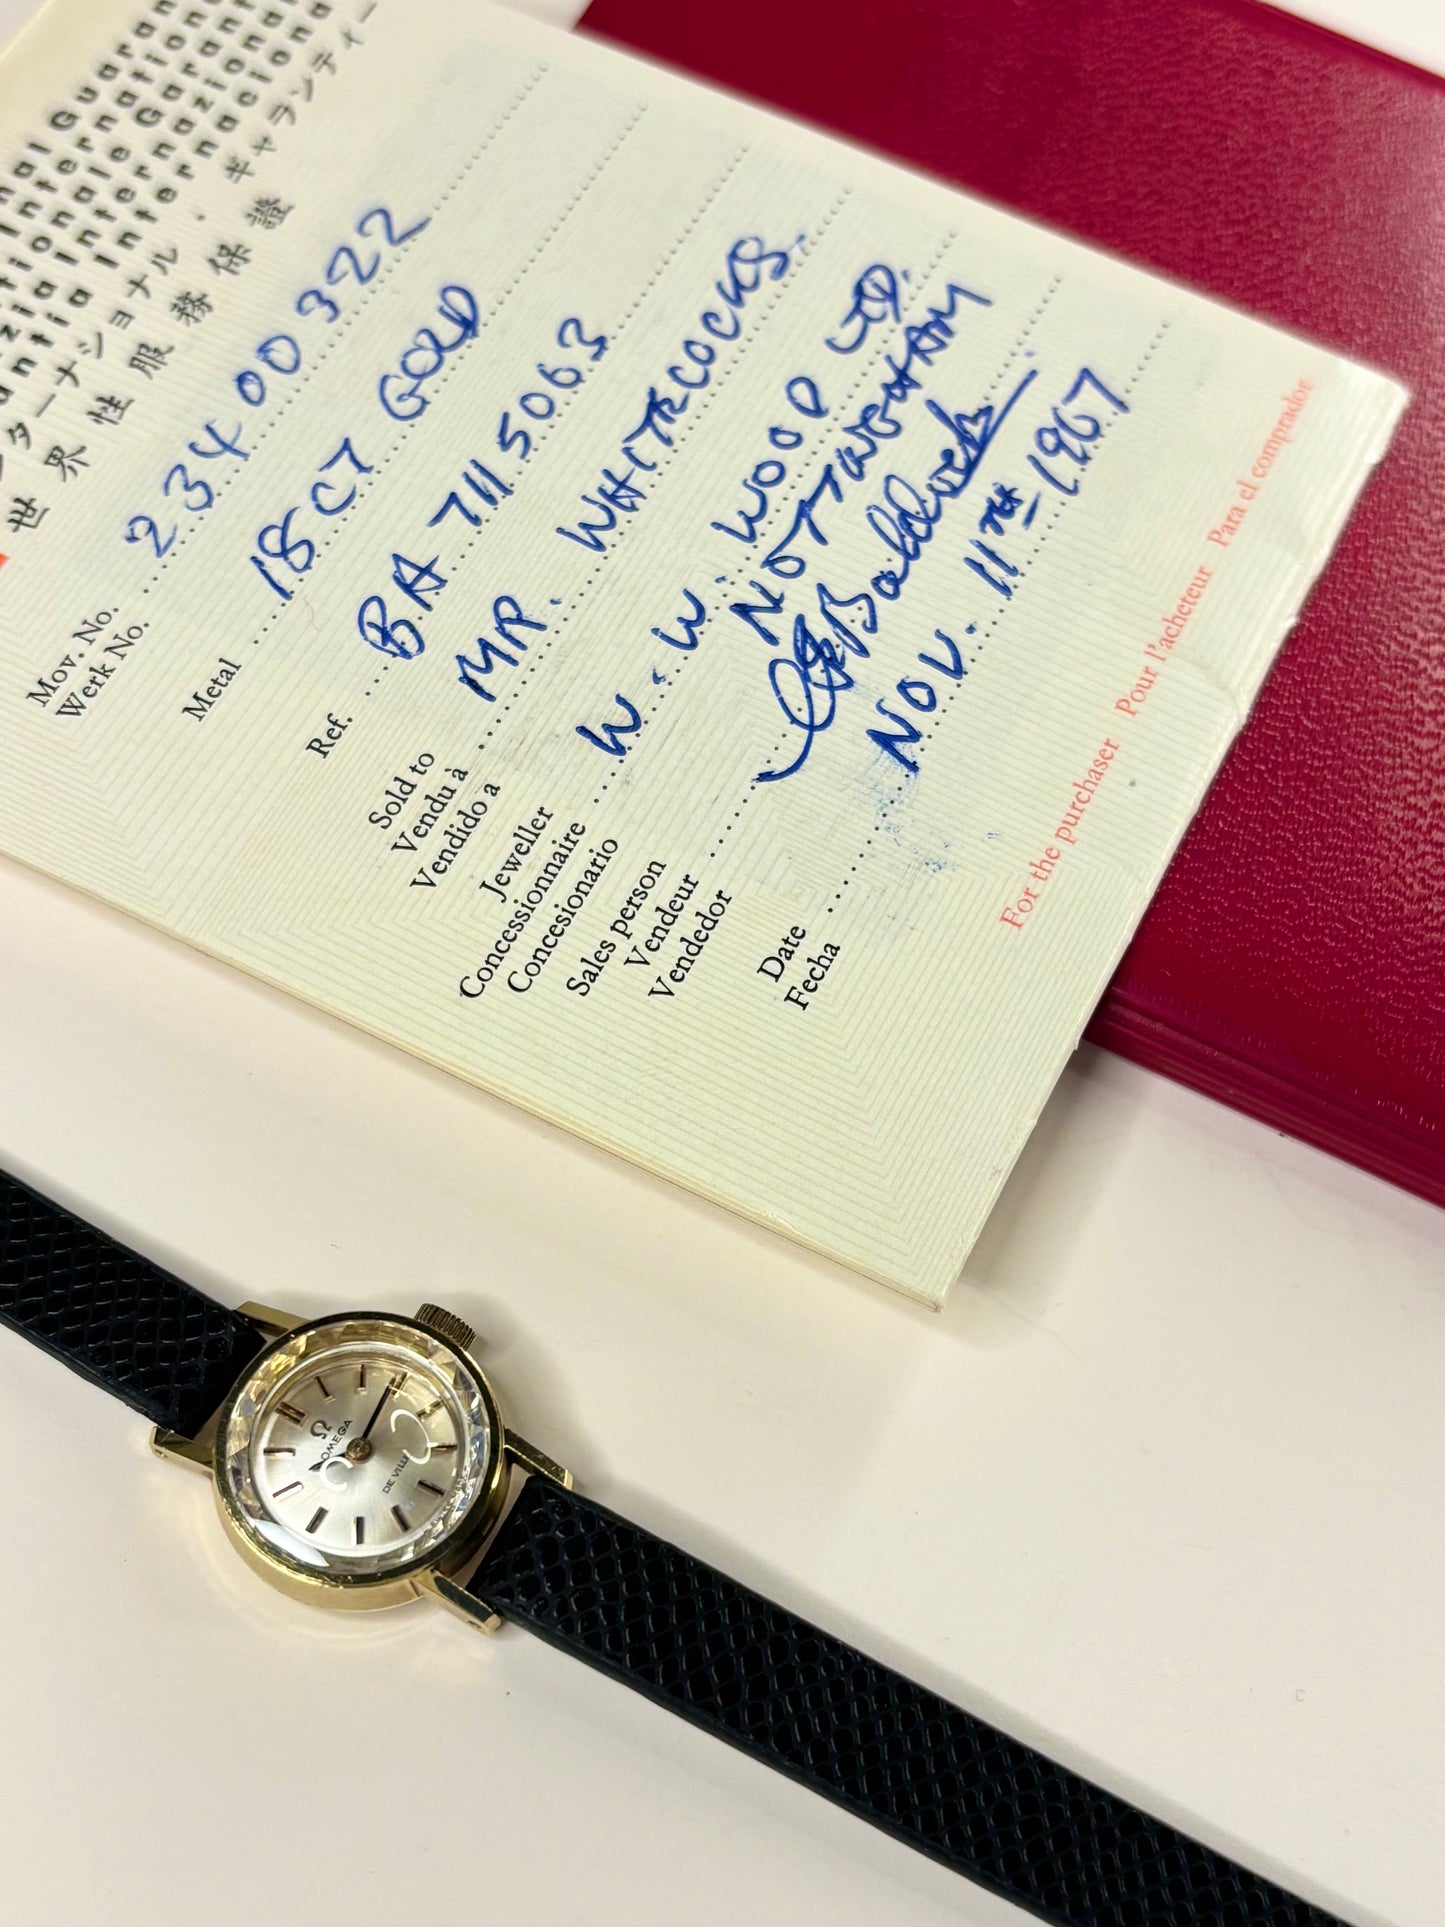 nal Guaran
Internation
tionale Garant
zia Internazional
ntía Internaciona
ターナショナル・ギャランティー
世界性服務保證
Mov. No.
Werk No. 23400322
Metal 18CT GOLD
Ref. BA 7115063
Sold to
Vendu à
Vendido a MR. WHITECOCKS.
Jeweller
Concessionnaire
Concesionario W. W. WOOD LTD.
NOTTINGHAM
Sales person
Vendeur
Vendedor
Date
Fecha NOV. 11TH 1967
For the purchaser Pour l'acheteur Para el comprador
Ω
OMEGA
DE VILLE